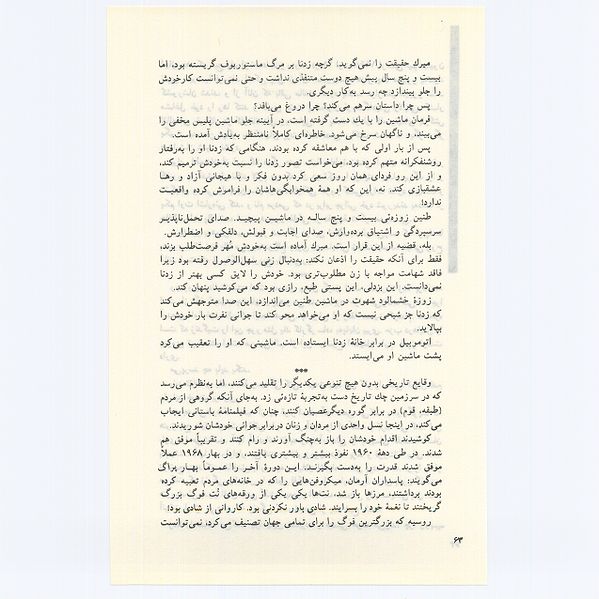 میرك حقیقت را نمی‌گوید: گرچه زدنا بر مرگ ماستوربوف گریسته بود، اما
بیست و پنج سال پیش هیچ دوست متنفذی نداشت و حتی نمی‌توانست کارخودش
را جلو بیندازد چه رسد به‌کار دیگری.
پس چرا داستان سرهم می‌کند؟ چرا دروغ می‌بافد؟
فرمان ماشین را با یك دست گرفته است، در آیینه جلو ماشین پلیس مخفی را
می‌بیند، و ناگهان سرخ می‌شود. خاطره‌ای کاملاً نامنتظر به‌یادش آمده است.
پس از بار اولی که با هم معاشقه کرده بودند، هنگامی که زدنا او را به‌رفتار
روشنفکرانه متهم کرده بود، می‌خواست تصور زدنا را نسبت به‌خودش ترمیم کند،
و از این رو فردای همان روز سعی کرد بدون فکر و با هیجانی آزاد و رها
عشقبازی کند. نه، این که او همهٔ همخوابگی‌هاشان را فراموش کرده واقعیت
ندارد!
طنین زوزه‌ئی بیست و پنج ساله در ماشین پیچید. صدای تحمل‌ناپذیر
سرسپردگی و اشتیاق برده‌وارش، صدای اجابت و قبولش، دلقکی و اضطرارش.
بله، قضیه از این قرار است. میرك آماده است به‌خودش مُهر فرصت‌طلب بزند،
فقط برای آنکه حقیقت را اذعان نکند: به‌دنبال زنی سهل‌الوصول رفته بود زیرا
فاقد شهامت مواجه با زن مطلوب‌تری بود. خودش را لایق کسی بهتر از زدنا
نمی‌دانست. این بزدلی، این پستی طبع، رازی بود که می‌کوشید پنهان کند.
زوزهٔ خشمالود شهوت در ماشین طنین می‌اندازد، این صدا متوجهش می‌کند
که زدنا جز شبحی نیست که او می‌خواهد محو کند تا جوانی نفرت بار خودش را
بپالاید.
اتوموبیل در برابر خانهٔ زدنا ایستاده است. ماشینی که او را تعقیب می‌کرد
پشت ماشین او می‌ایستد.
***
وقایع تاریخی بدون هیچ تنوعی یکدیگر را تقلید می‌کنند، اما به‌نظرم می‌رسد
که در سرزمین چك تاریخ دست به‌تجربهٔ تازه‌ئی زد. به‌جای آنکه گروهی از مردم
(طبقه، قوم) در برابر گروه دیگرعصیان کنند، چنان که فیلمنامهٔ باستانی ایجاب
می‌کند، در اینجا نسل واحدی از مردان و زنان دربرابر جوانی خودشان شوریدند.
کوشیدند اقدام خودشان را باز به‌چنگ آورند و رام کنند و تقریباً موفق هم
شدند. در طی دههٔ ۱۹۶۰ نفوذ بیشتر و بیشتری یافتند، و در بهار ۱۹۶۸ عملاً
موفق شدند قدرت را به‌دست بگیرند. این دورهٔ آخر را عموماً بهار پراگ
می‌گویند: پاسداران آرمان، میکروفن‌هایی را که در خانه‌های مردم تعبیه کرده
بودند برداشتند، مرزها باز شد، نت‌ها یکی یکی از ورقه‌های نُت فوگ بزرگ
گریختند تا نغمهٔ خود را بسرایند. شادی باور نکردنی بود. کاروانی از شادی بود!
روسیه که بزرگترین فوگ را برای تمامی جهان تصنیف می‌کرد، نمی‌توانست
۶۳